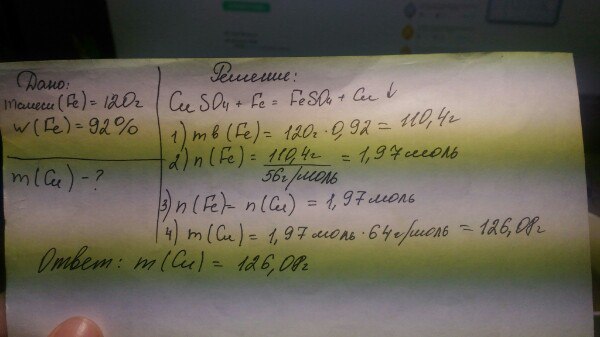 Дано:
mсмеси (Fe) = 120г
w (Fe) = 92%
m (Cu) - ?
Решение:
CuSO4 + Fe = FeSO4 + Cu ↓
1) mв (Fe) = 120г · 0,92 = 110,4г
2) n (Fe) = 110,4г / 56г/моль = 1,97 моль
3) n (Fe) = n (Cu) = 1,97 моль
4) m (Cu) = 1,97 моль · 64г/моль = 126,08г
Ответ: m (Cu) = 126,08г